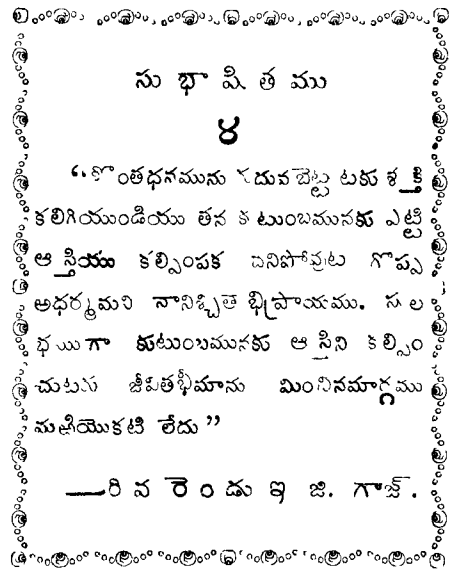 సుభాషితము
౪
“కొంతధనమును కదువబెట్టుటకు శక్తి
కలిగియుండియు తన కుటుంబమునకు ఎట్టి
ఆస్తియు కల్పింపక చనిపోవుట గొప్ప
అధర్మమని నానిశ్చితాభిప్రాయము. సుల
భముగా కుటుంబమునకు ఆస్తిని కల్పిం
చుటకు జీవితభీమాను మించినమార్గము
మఱియొకటి లేదు”
—రివరెండు ఇ జి. గాజ్.